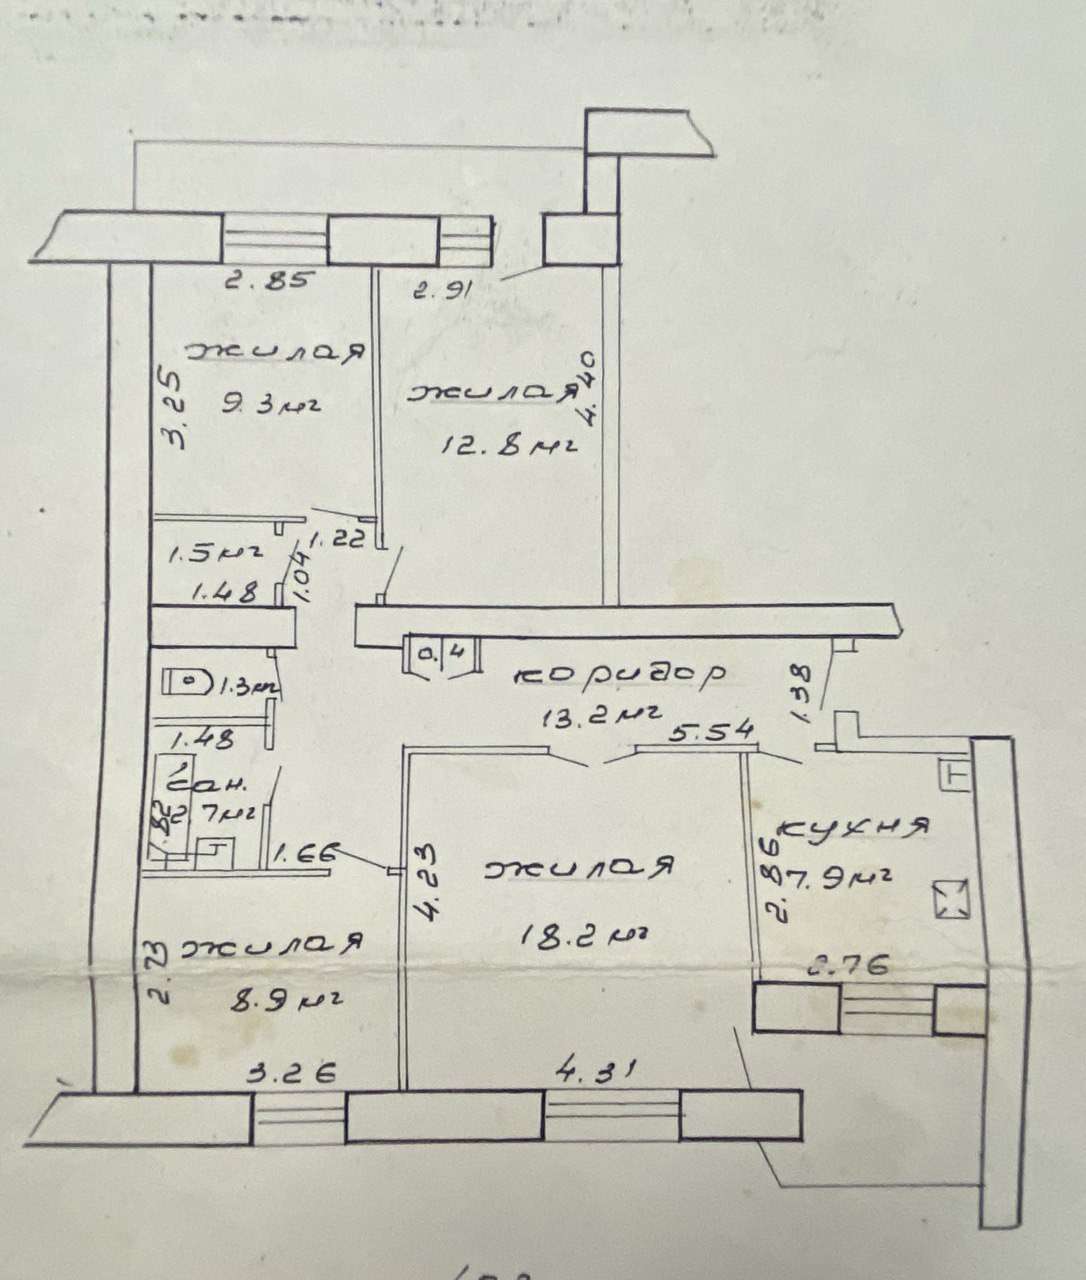 2.85
2.91
жилая
9.3 м2
3.25
жилая
12.8 м2
4.40
1.5 м2
1.48
1.22
1.04
0.4
коридор
13.2 м2
5.54
1.38
1.3 м2
1.48
сан.
2.7 м2
1.66
4.23
жилая
18.2 м2
4.31
кухня
7.9 м2
2.86
2.76
жилая
8.9 м2
2.73
3.26